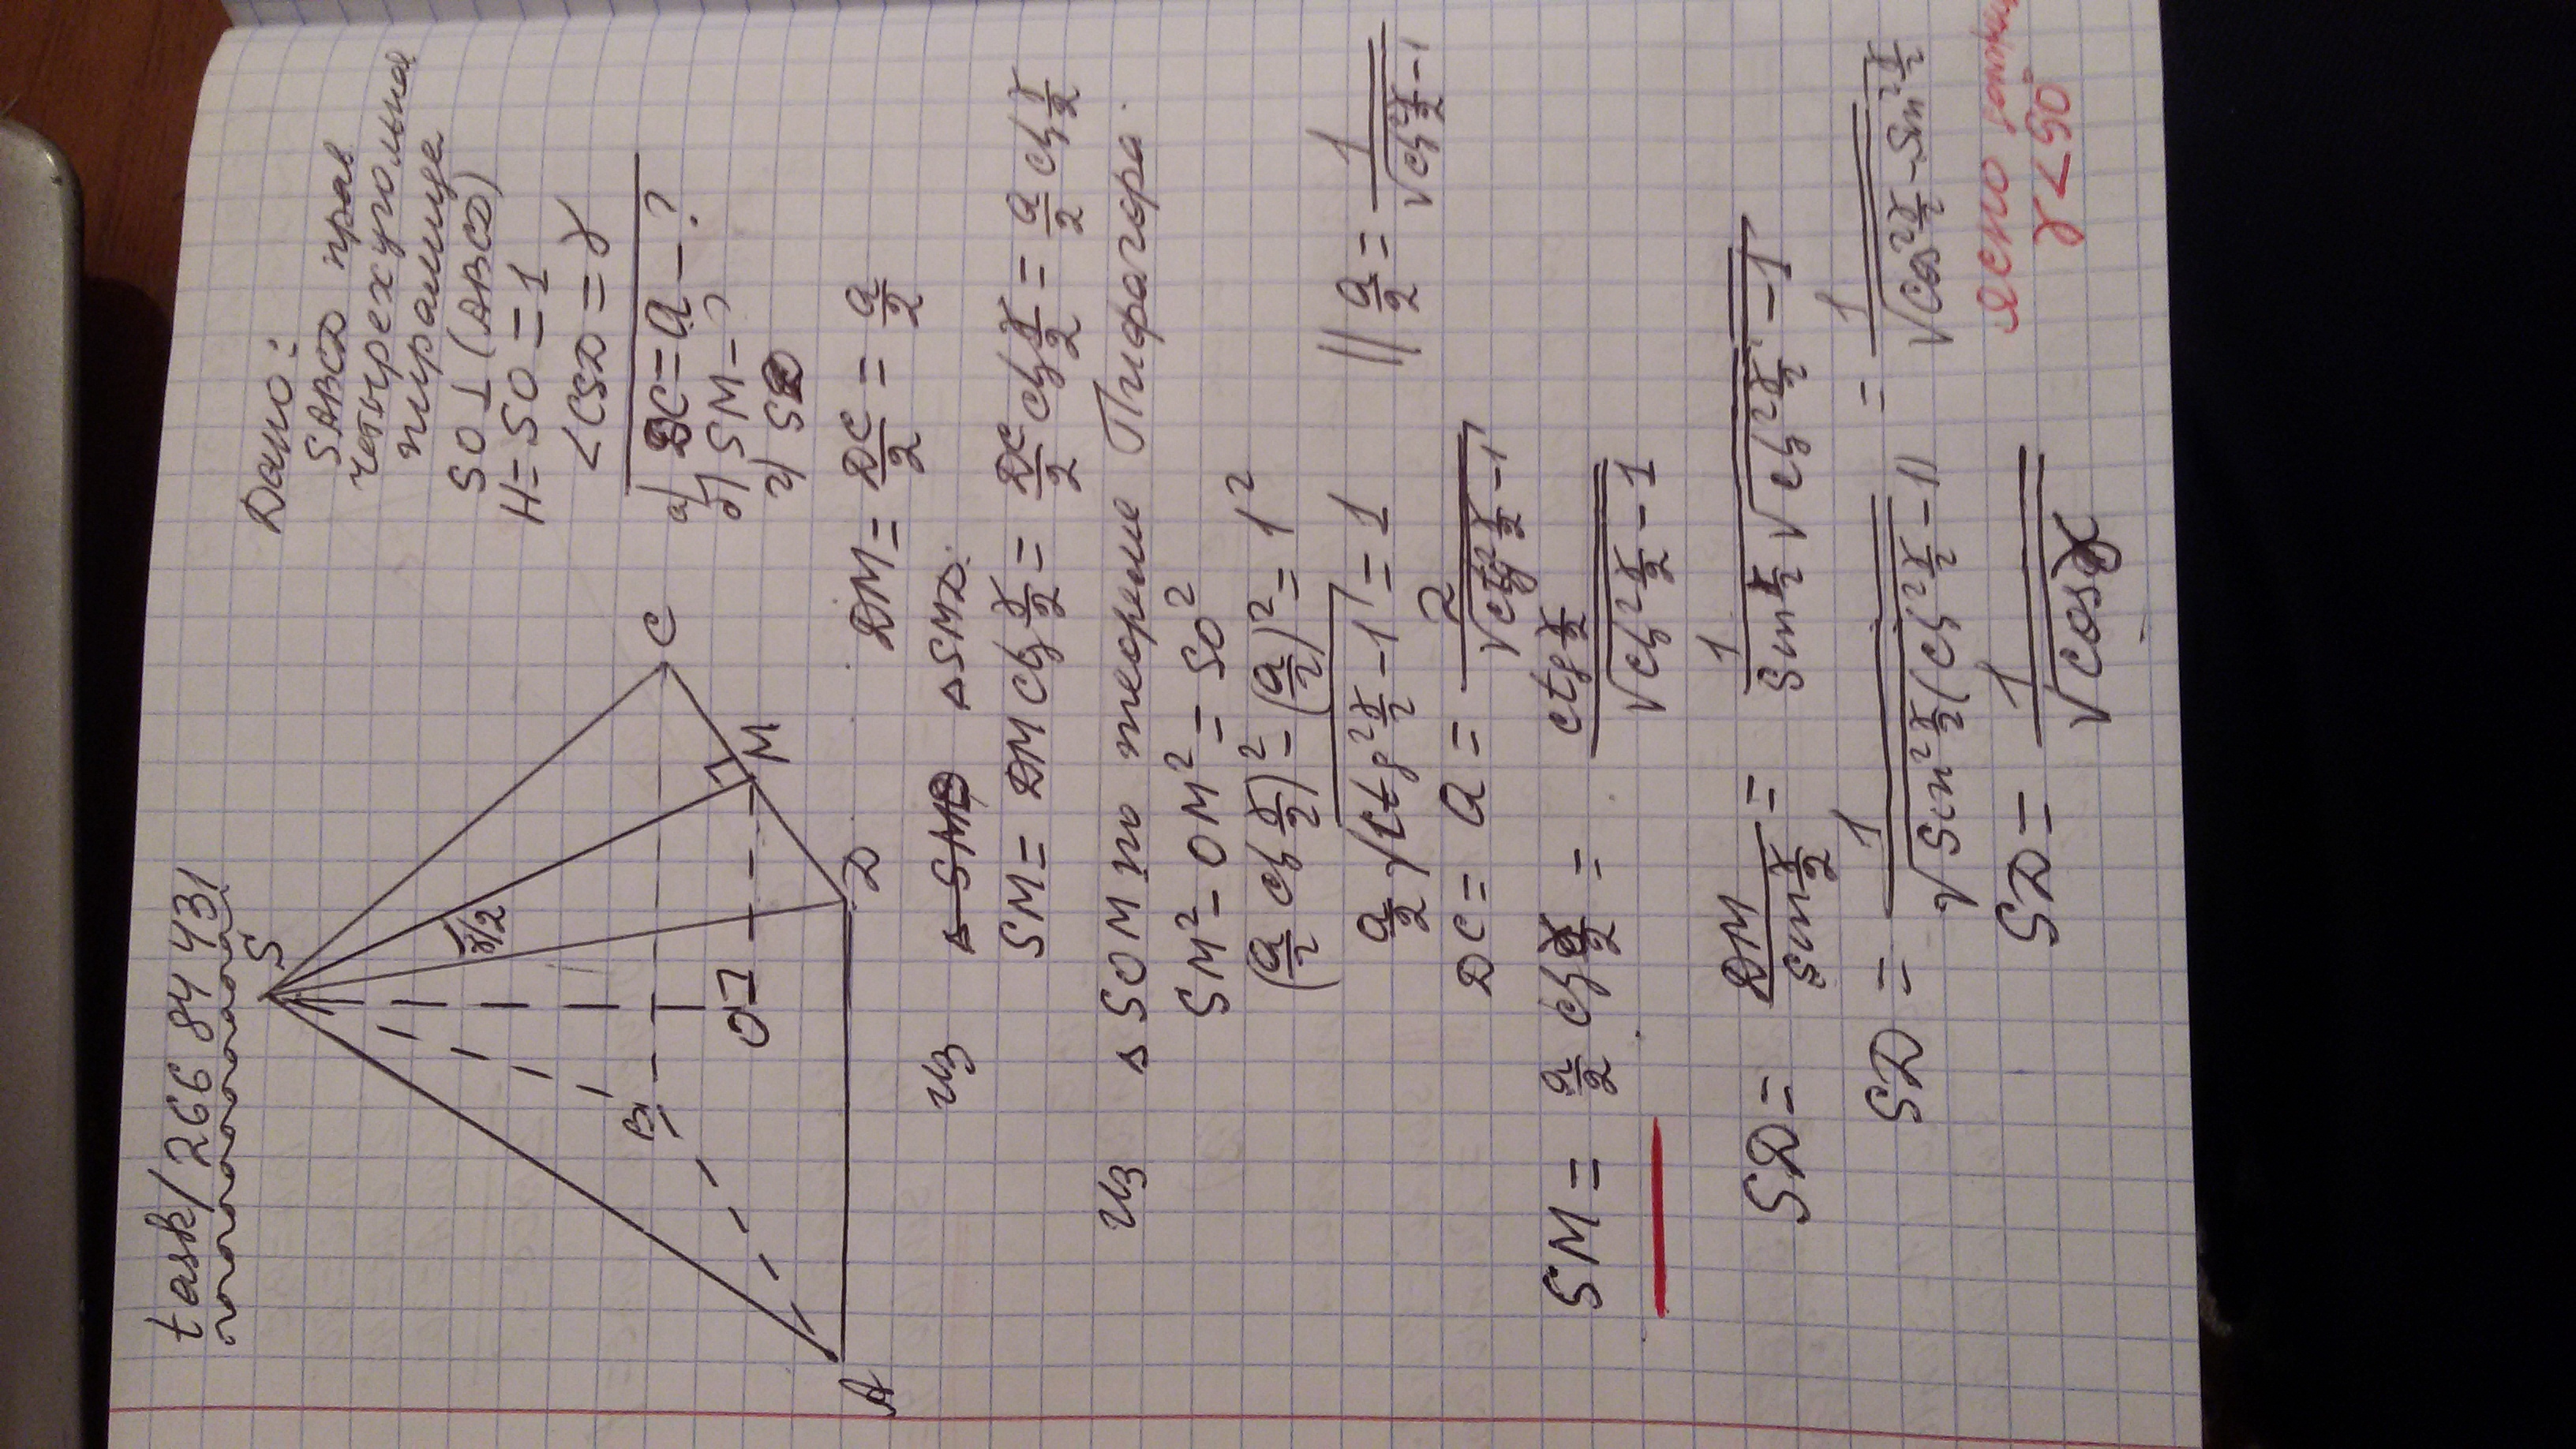 task/26684431
Дано:
SABCD прав
четырехугольная
пирамида
SO ⊥ (ABCD)
H = SO = 1
<CSD = γ
а) DC = a – ?
б) SM – ?
г) SD
S
γ/2
B
O
C
M
A
D
DM = DC/2 = a/2
из ΔSMD:
SM = DM ctg γ/2 = DC/2 ctg γ/2 = a/2 ctg γ/2
из ΔSOM по теореме Пифагора.
SM² – OM² = SO²
(a/2 ctg γ/2)² – (a/2)² = 1²
a/2 √(ctg² γ/2 – 1) = 1 // a/2 = 1/√(ctg² γ/2 – 1)
DC = a = 2/√(ctg² γ/2 – 1)
SM = a/2 ctg γ/2 = ctg γ/2 / √(ctg² γ/2 – 1)
SD = DM / sin γ/2 = 1 / (sin γ/2 √(ctg² γ/2 – 1))
SD = 1/√(sin² γ/2 (ctg² γ/2 – 1)) = 1/√(cos² γ/2 – sin² γ/2)
SD = 1/√cosγ
ясно
γ < 90°